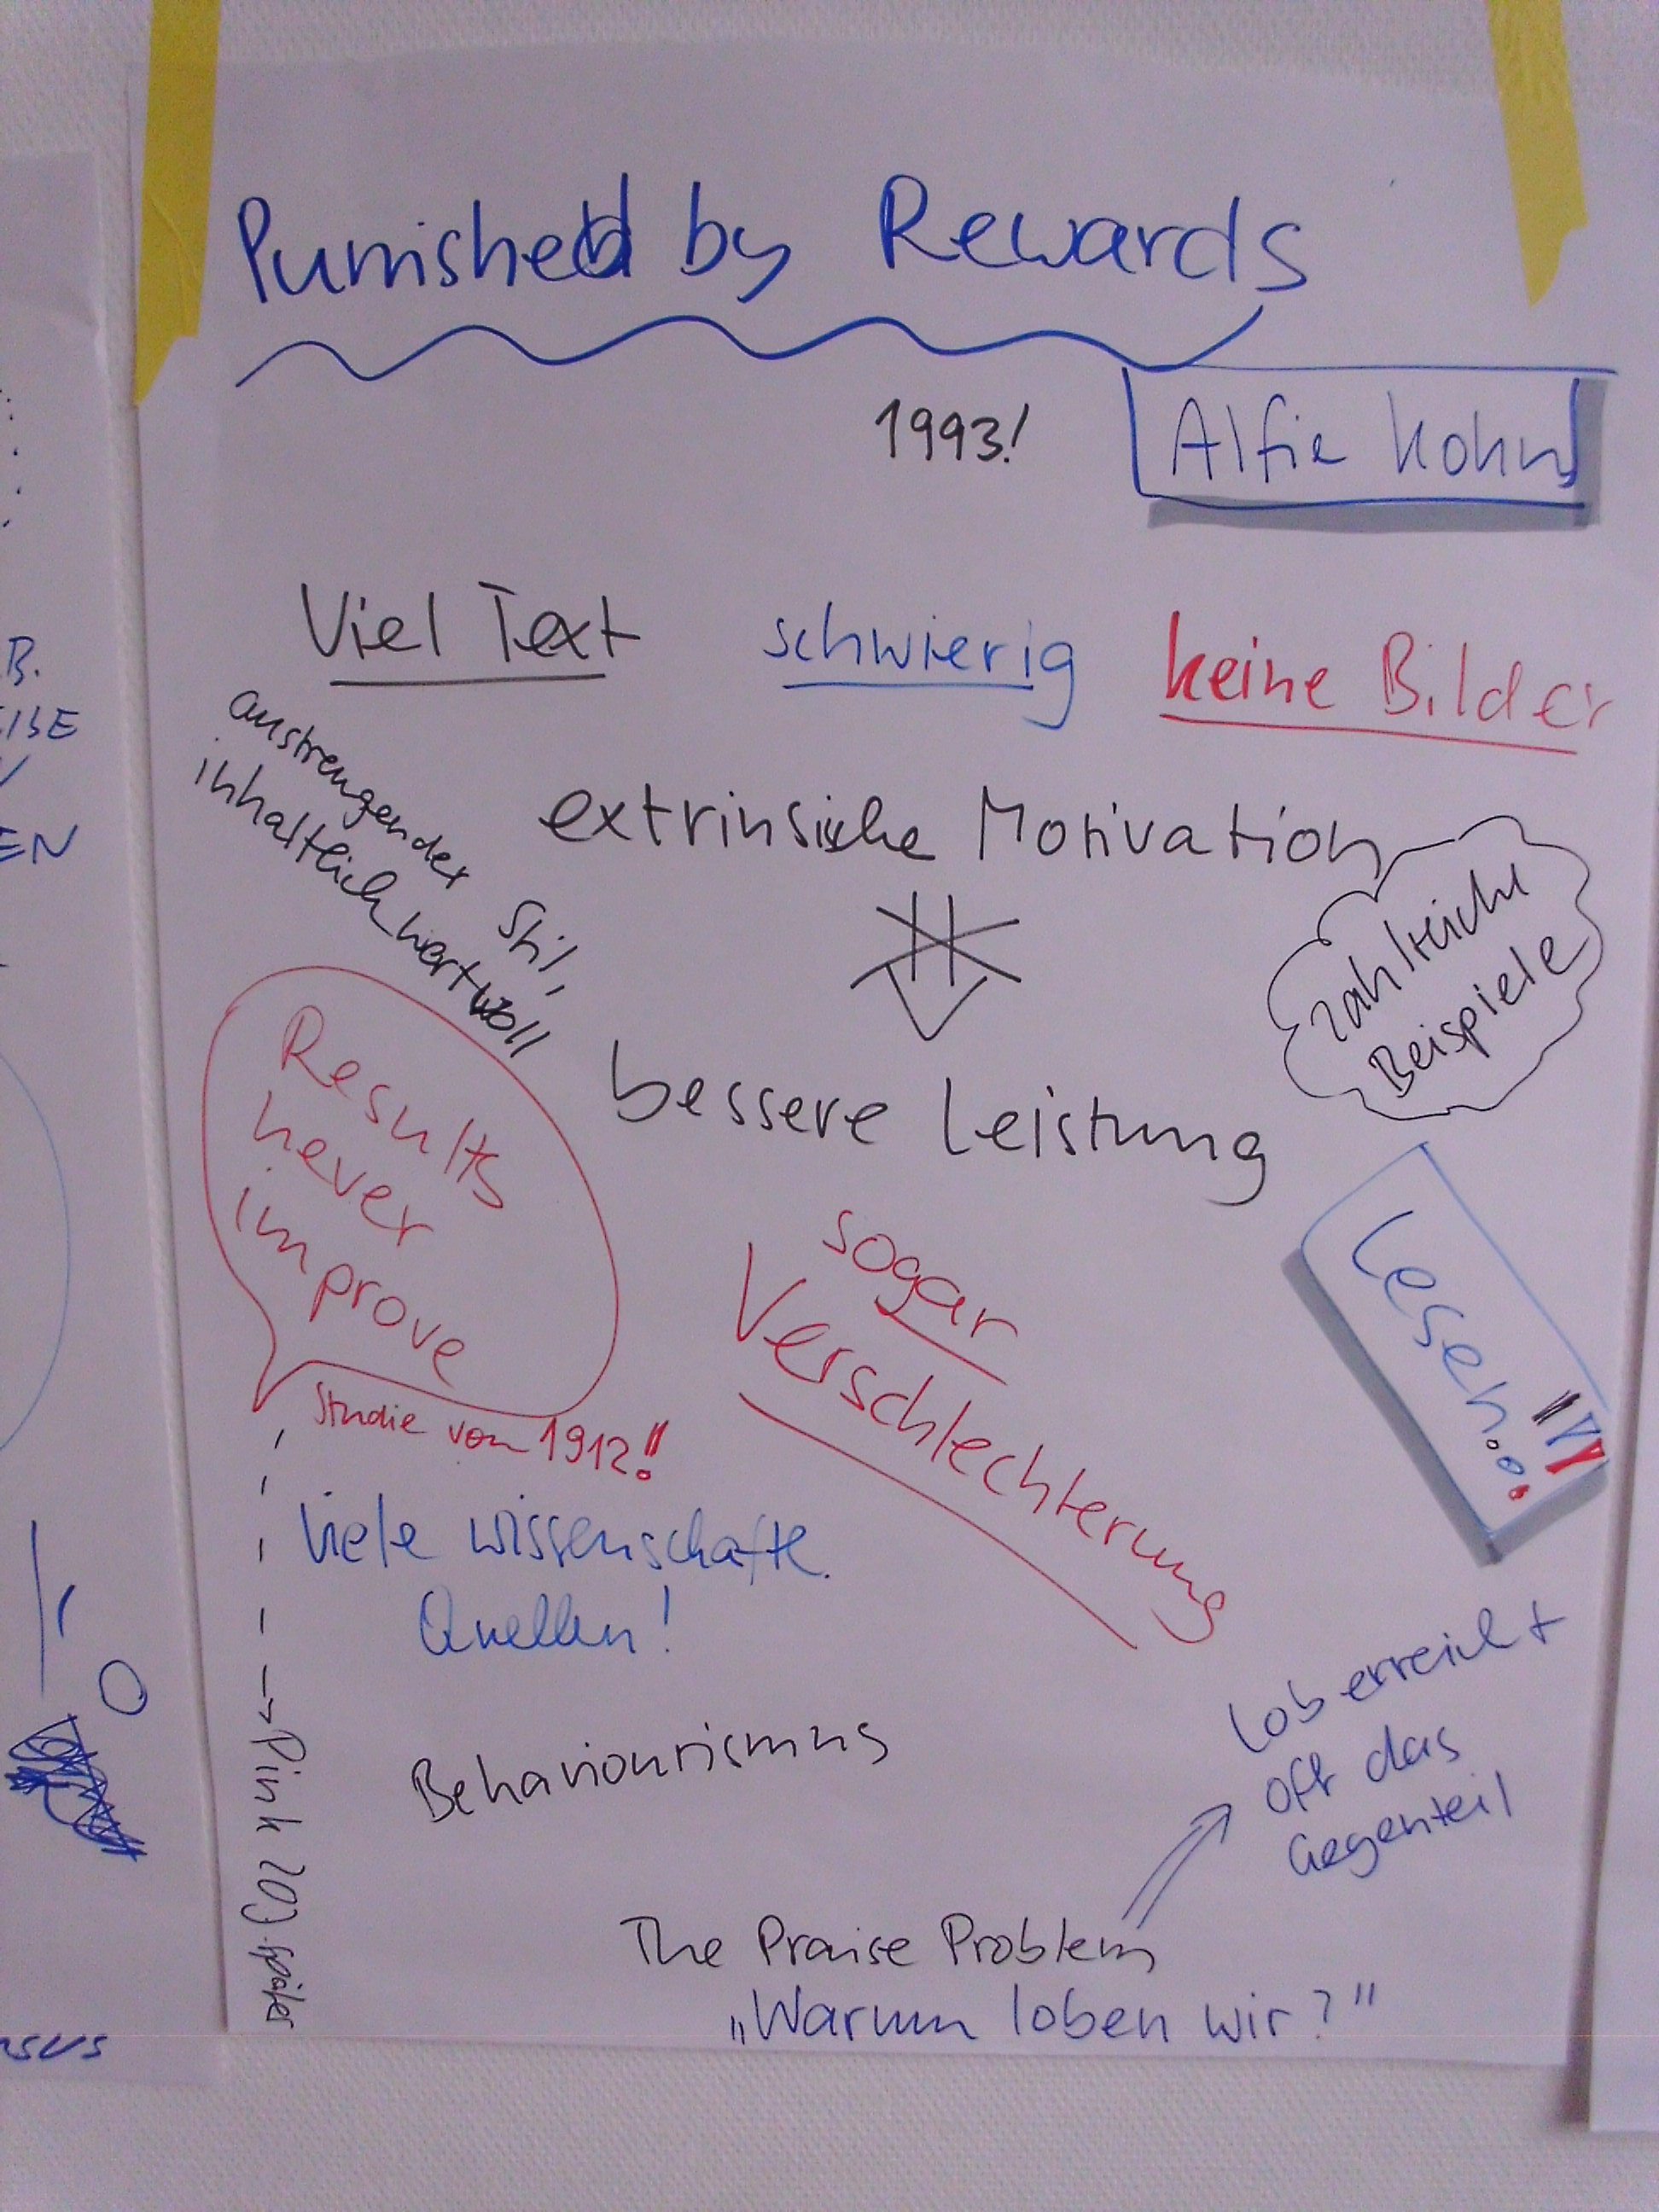 Punished by Rewards
1993!
Alfie Kohn
Viel Text
schwierig
keine Bilder
anstrengender Stil,
inhaltlich wertvoll
extrinsische Motivation
zahlreiche
Beispiele
bessere Leistung
Results
never
improve
Studie von 1912!!
sogar
Verschlechterung
Lesen!!!
viele wissenschaftl.
Quellen!
Behaviourismus
Lob erreicht
oft das
Gegenteil
The Praise Problem
„Warum loben wir?"
Pink 20J. später
B.
EN